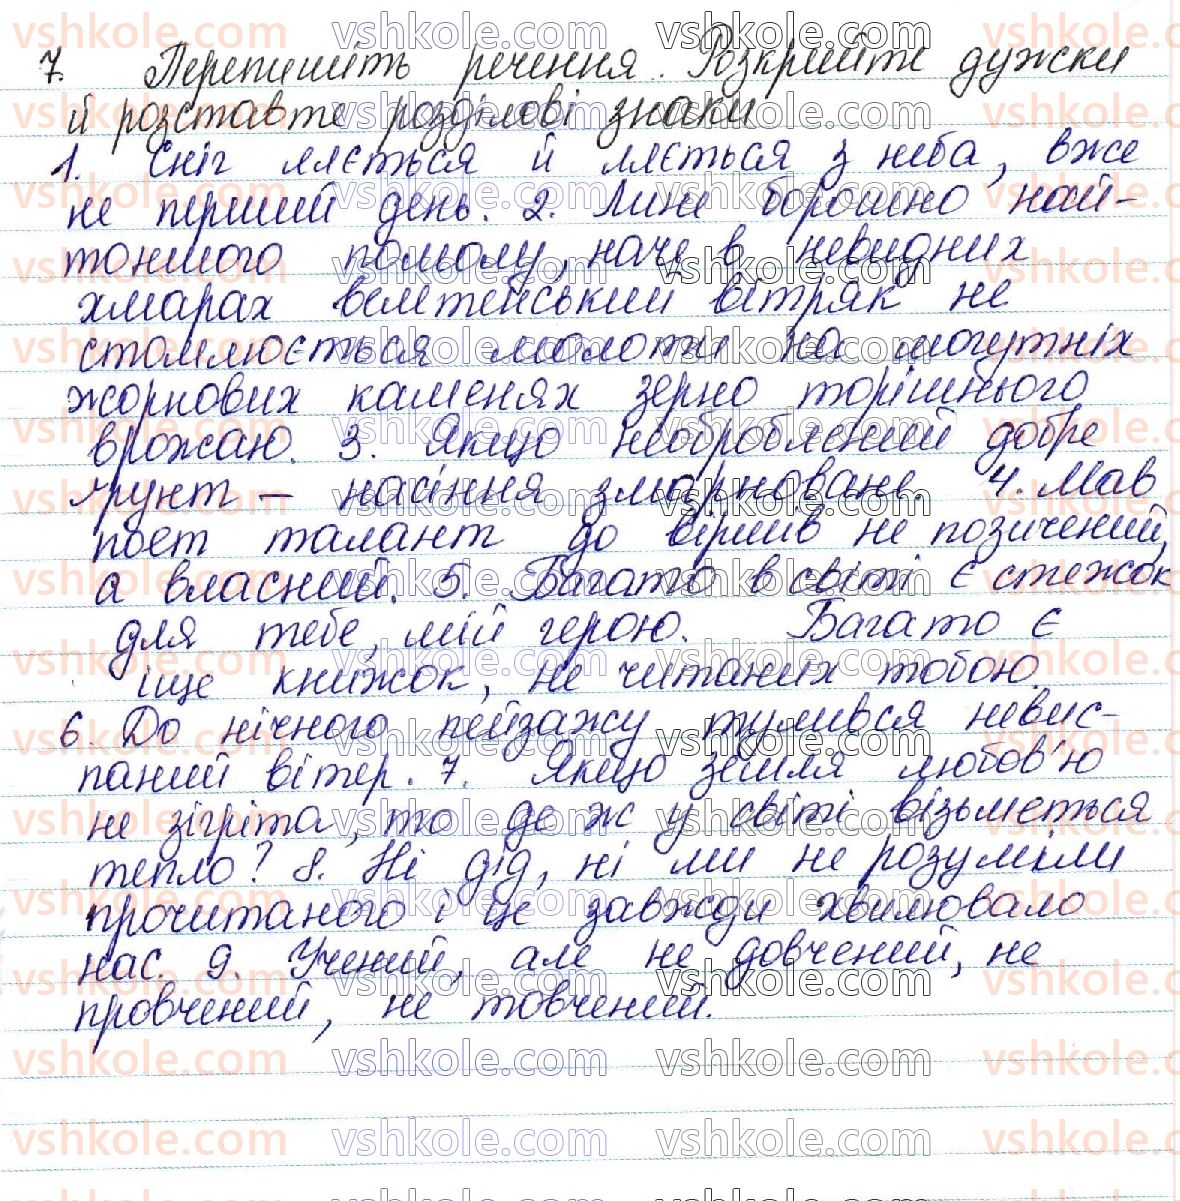 7. Перепишіть речення. Розкрийте дужки
й розставте розділові знаки
1. Сніг ллється й ллється з неба, вже
не перший день. 2. Лине борошно най-
тоншого помолу, наче в невидних
хмарах велетенський вітряк не
стомлюється молоти на могутніх
жорнових каменях зерно торішнього
врожаю. 3. Якщо необроблений добре
ґрунт – насіння змарноване. 4. Мав
поет талант до віршів не позичений,
а власний. 5. Багато в світі є стежок
для тебе, мій герою. Багато є
іще книжок, не читаних тобою.
6. До нічного пейзажу тулився невис-
паний вітер. 7. Якщо земля любов'ю
не зігріта, то де ж у світі візьметься
тепло? 8. Ні дід, ні ми не розуміли
прочитаного і це завжди хвилювало
нас. 9. Учений, але не довчений, не
провчений, не товчений.